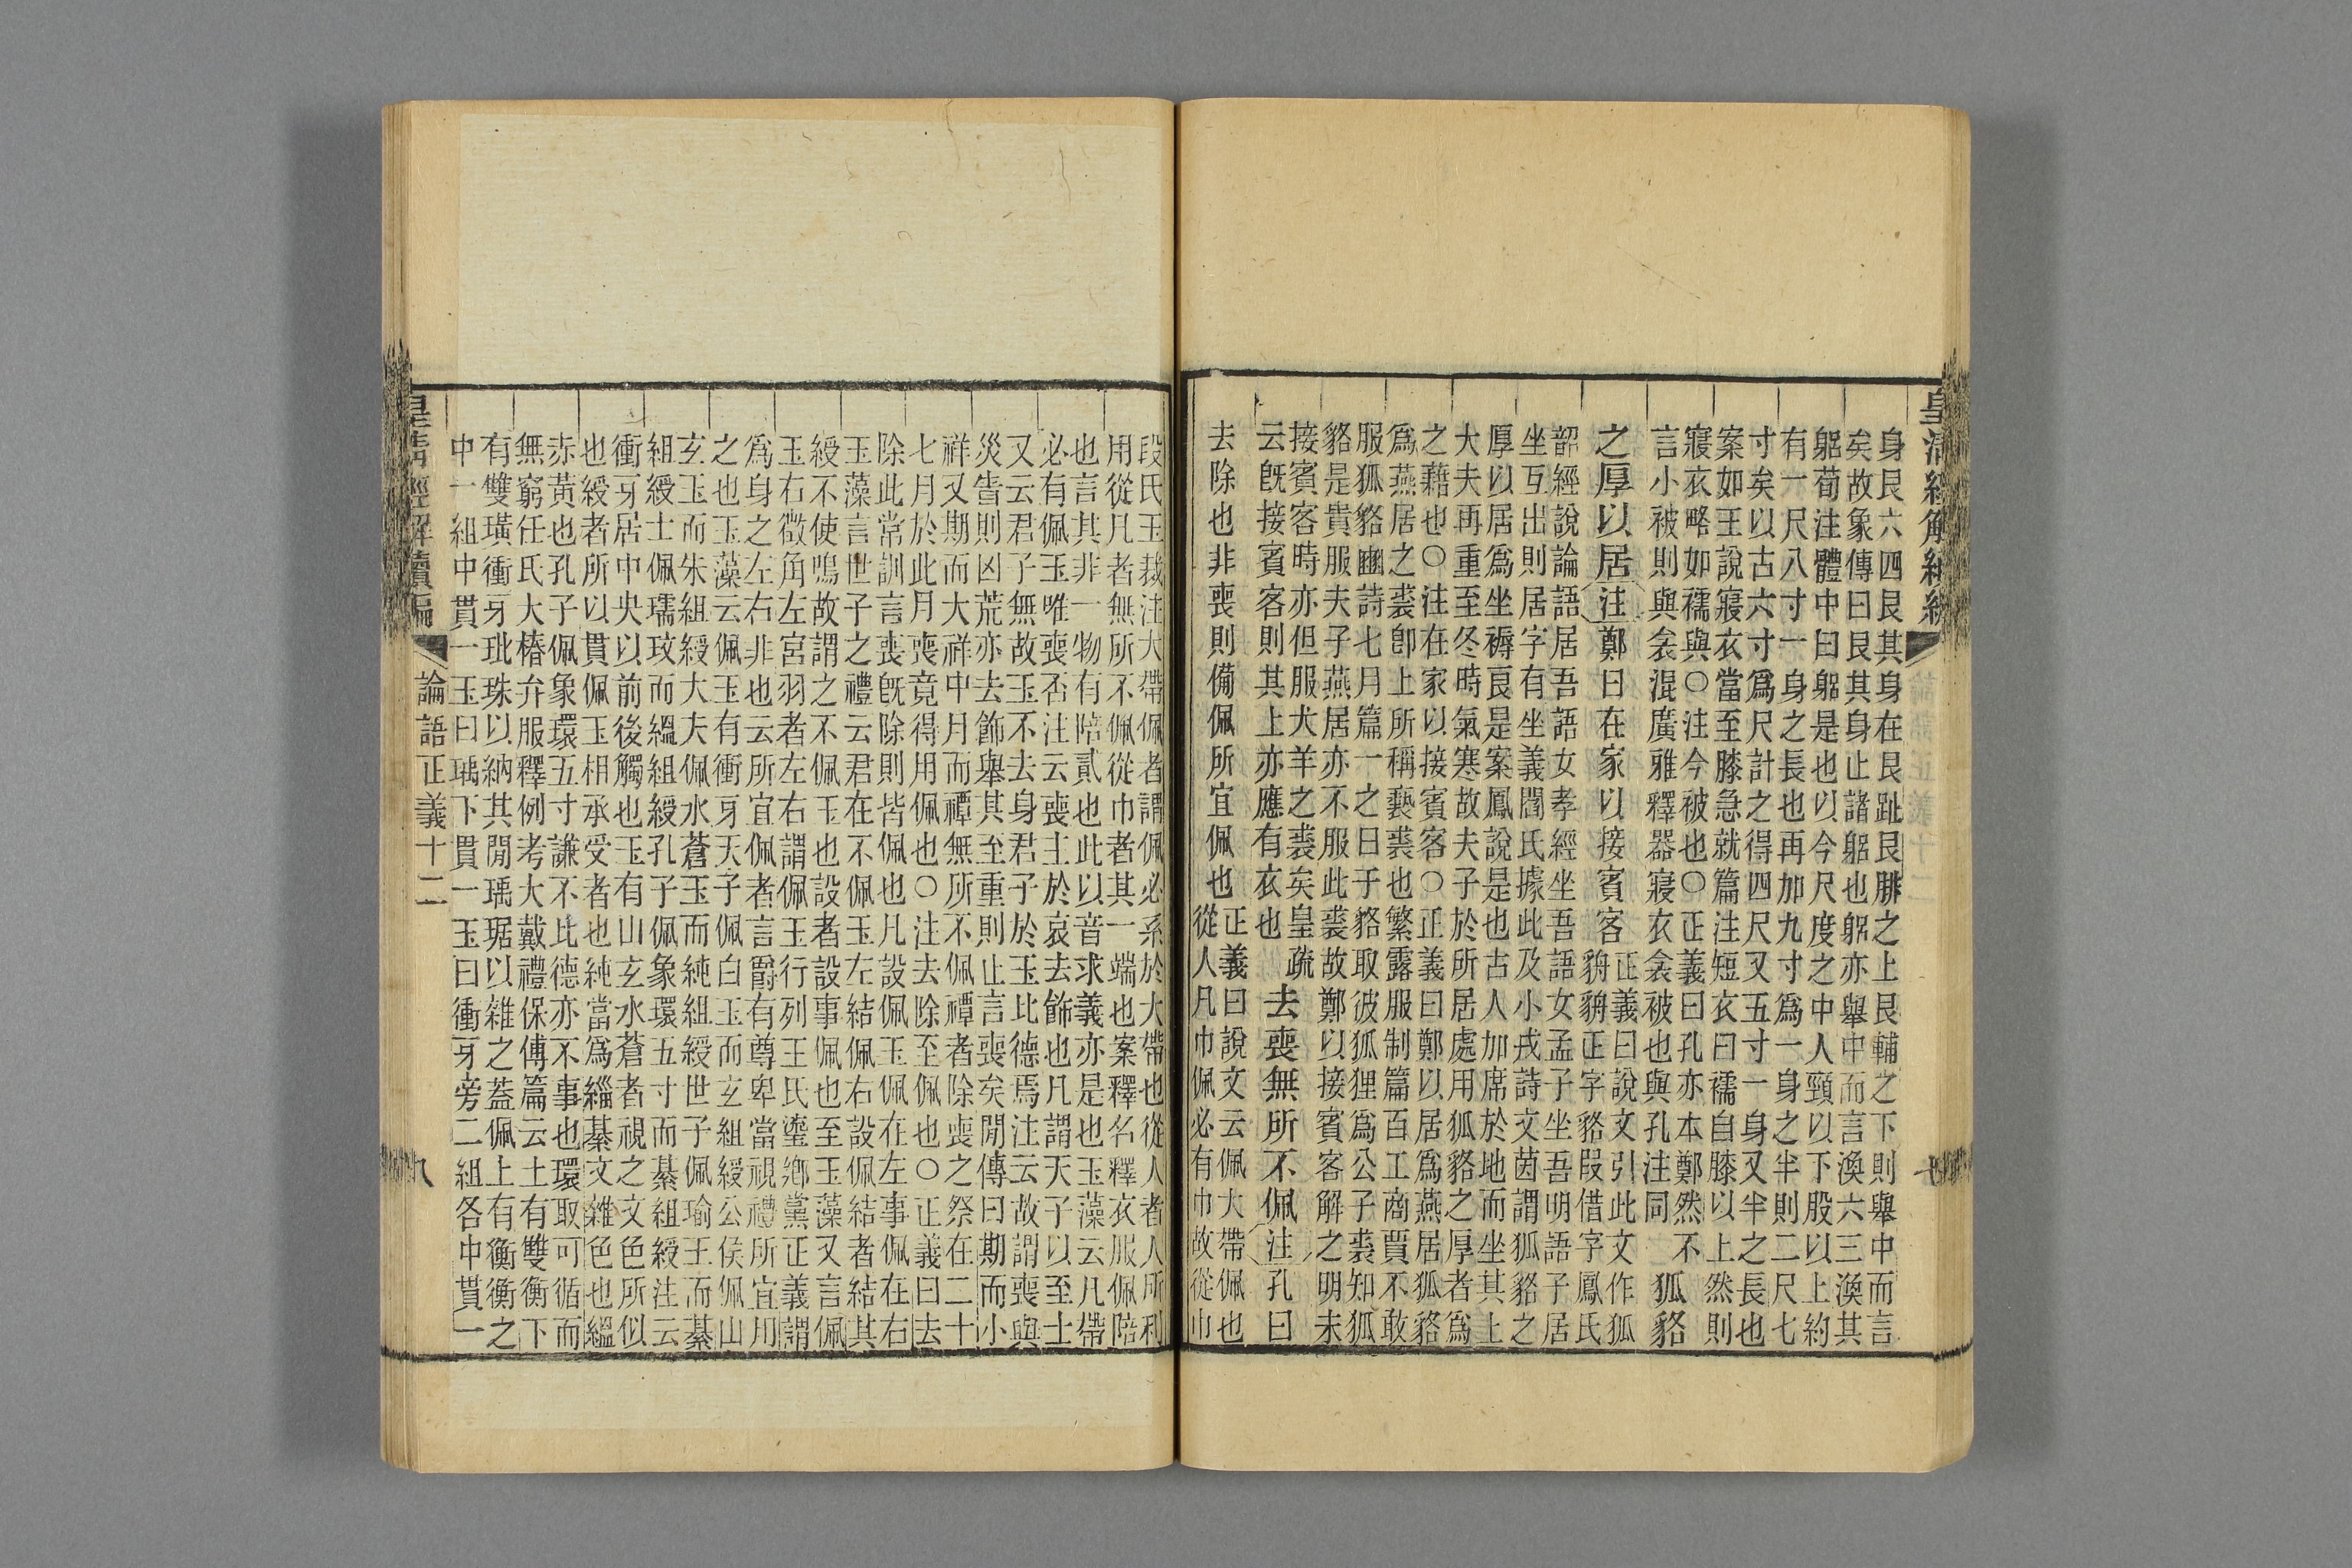 身艮六四艮其身在艮趾艮腓之上艮輔之下則舉中而言
矣故象傳曰艮其身止諸躳也躳亦舉中而言渙六三渙其
躳荀注體中曰躳是也以今尺度之中人頸以下股以上約
有一尺八寸一身之長也再加九寸爲一身之半則二尺七
寸矣以古六寸爲尺計之得四尺又五寸一身又半之長也
案如王說寢衣當至膝急就篇注短衣曰襦自膝以上然則
寢衣略如襦與○注今被也○正義曰孔亦本鄭然不
言小被則與衾混廣雅釋器寢衣衾被也與孔注同
狐貉
之厚以居
注
鄭曰在家以接賓客
正義曰說文引此文作狐
貈貈正字貉叚借字鳳氏
韶經說論語居吾語女孝經坐吾語女孟子坐吾明語子居
坐互出則居字有坐義閻氏據此及小戎詩文茵謂狐貉之
厚以居爲坐褥良是案鳳說是也古人加席於地而坐其上
大夫再重至冬時氣寒故夫子於所居處用狐貉之厚者爲
之藉也○注在家以接賓客○正義曰鄭以居爲燕居狐貉
爲燕居之裘卽上所稱褻裘也繁露服制篇百工商賈不敢
服狐貉豳詩七月篇一之日于貉取彼狐狸爲公子裘知狐
貉是貴服夫子燕居亦不服此裘故鄭以接賓客解之明未
接賓客時亦但服犬羊之裘矣皇疏
云旣接賓客則其上亦應有衣也
去喪無所不佩
注
孔曰
去除也非喪則備佩所宜佩也
正義曰說文云佩大帶佩也
從人凡巾佩必有巾故從巾
段氏玉裁注大帶佩者謂佩必系於大帶也從人者人所利
用從凡者無所不佩從巾者其一端也案釋名釋衣服佩陪
也言其非一物有陪貳也此以音求義亦是也玉藻云凡帶
必有佩玉唯喪否注云喪主於哀去飾也凡謂天子以至士
又云君子無故玉不去身君子於玉比德焉注云故謂喪與
災眚則凶荒亦去飾舉其至重則止言喪矣閒傳曰期而小
祥又期而大祥中月而禫無所不佩禫者除喪之祭在二十
七月於此月喪竟得用佩也○注去除至佩也○正義曰去
除此常訓言喪旣除則皆佩也凡設佩玉佩在左事佩在右
玉藻言世子之禮云君在不佩玉左結佩右設佩結者結其
綬不使鳴故謂之不佩玉也設者設事佩也至玉藻又言佩
玉右徵角左宮羽者左右謂佩玉行列王氏鎏鄉黨正義謂
爲身之左右非也云所宜佩者言爵有尊卑當視禮所宜用
之也玉藻云佩玉有衝牙天子佩白玉而玄組綬公侯佩山
玄玉而朱組綬大夫佩水蒼玉而純組綬世子佩瑜玉而綦
組綬士佩瓀玟而縕組綬孔子佩象環五寸而綦組綬注云
衝牙居中央以前後觸也玉有山玄水蒼者視之文色所似
也綬者所以貫佩玉相承受者也純當爲緇綦文雜色也縕
赤黃也孔子佩象環五寸謙不比德亦不事也環取可循而
無窮任氏大椿弁服釋例考大戴禮保傅篇云上有雙衡下
有雙璜衝牙玭珠以納其閒瑀琚以雜之蓋佩上有衡衡之
中一組中貫一玉曰瑀下貫一玉曰衝牙旁二組各中貫一
皇清經解續編
論語正義十二
八